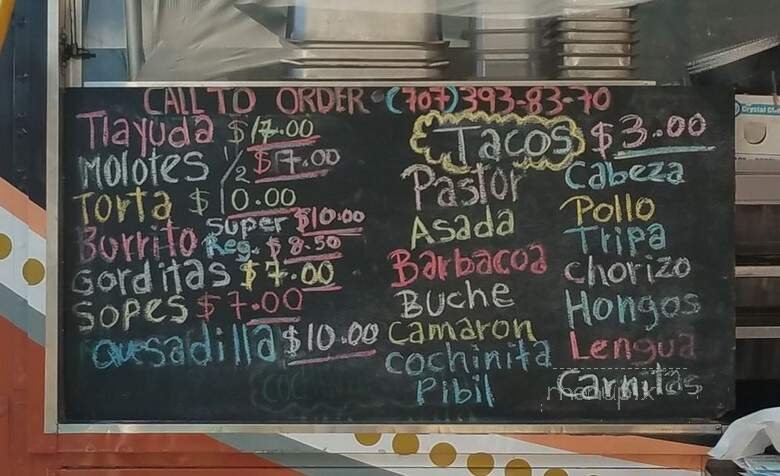 CALL TO ORDER (707)393-83-70
Tlayuda $17.00
Molotes 1/2 $7.00
Torta $10.00
Burrito super $10.00
Reg. $8.50
Gorditas $7.00
Sopes $7.00
Quesadilla $10.00
Tacos $3.00
Pastor
Asada
Barbacoa
Buche
Camaron
cochinita
Pibil
Cabeza
Pollo
Tripa
Chorizo
Hongos
Lengua
Carnitas
menupix